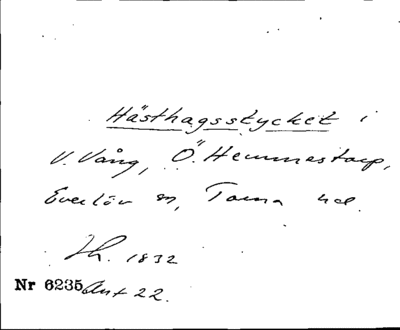 Hästhagsstycket i
V. Vång, Ö. Hemmestorp,
Everlöv sn, Torna hd.
Lh. 1832
Nr 6235 Akt 22.